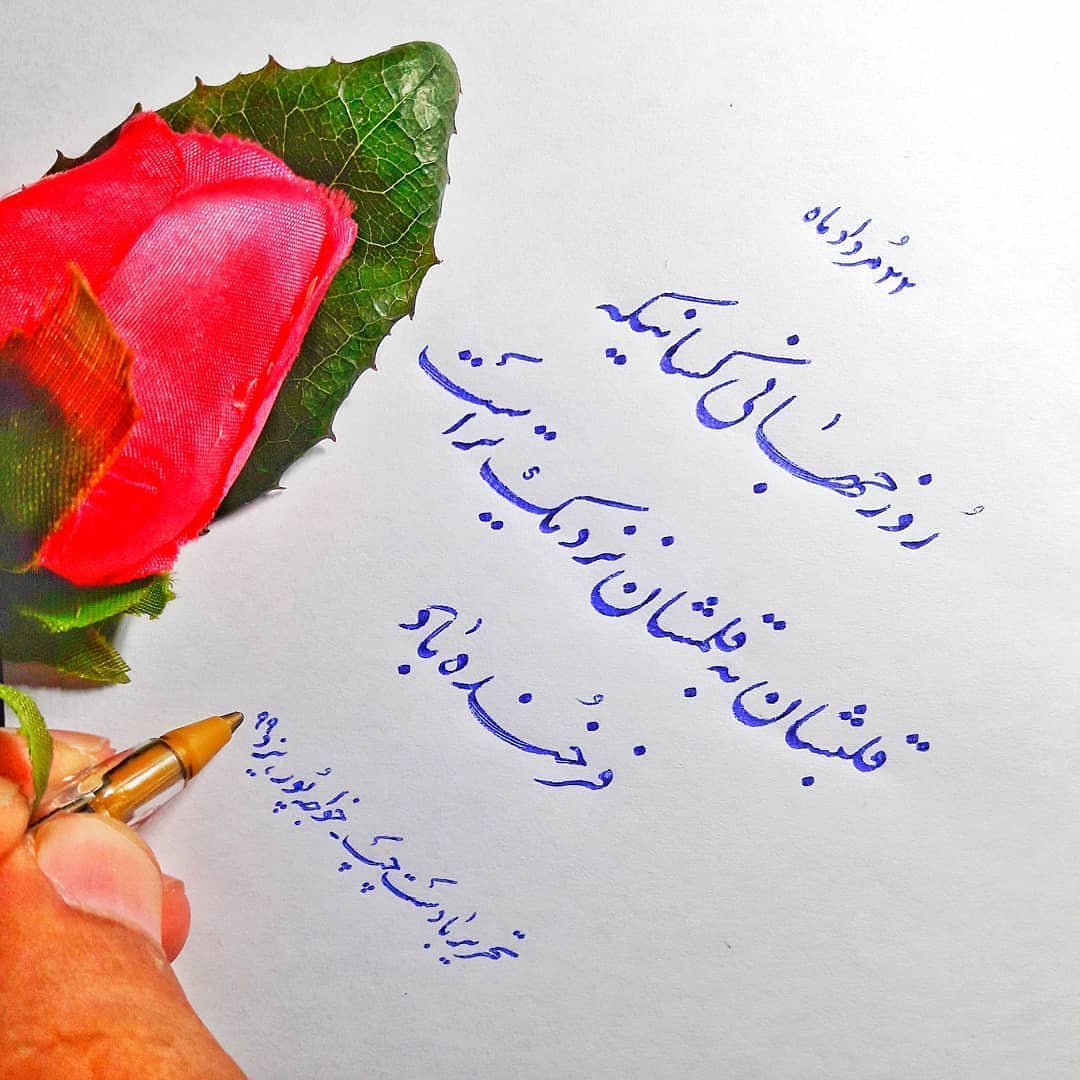 ۲۲ مُرداد ماه
رُوز جهانی کسانیکه
قلبشان به قلمشان نزدیک تر است
فرخُنده باد
تحریر با دست چپ، خواجه پُور، یزد ۹۹